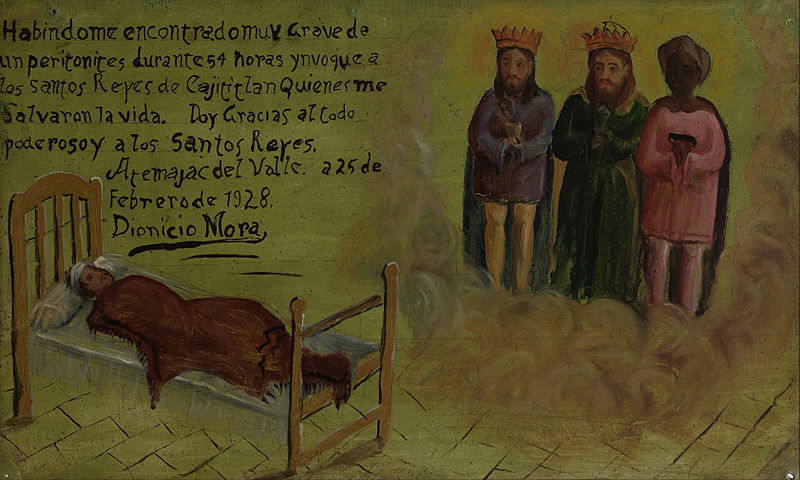 Habindome encontradomuy Grave de
un peritonites durante 54 horas ynvoque a
los santos Reyes de Cajititlan Quienes me
Salvaron la vida. Doy Gracias al todo
poderoso y a los Santos Reyes.
Atemajac del Valle. a 25 de
Febrero de 1928.
Dionicio Mora,